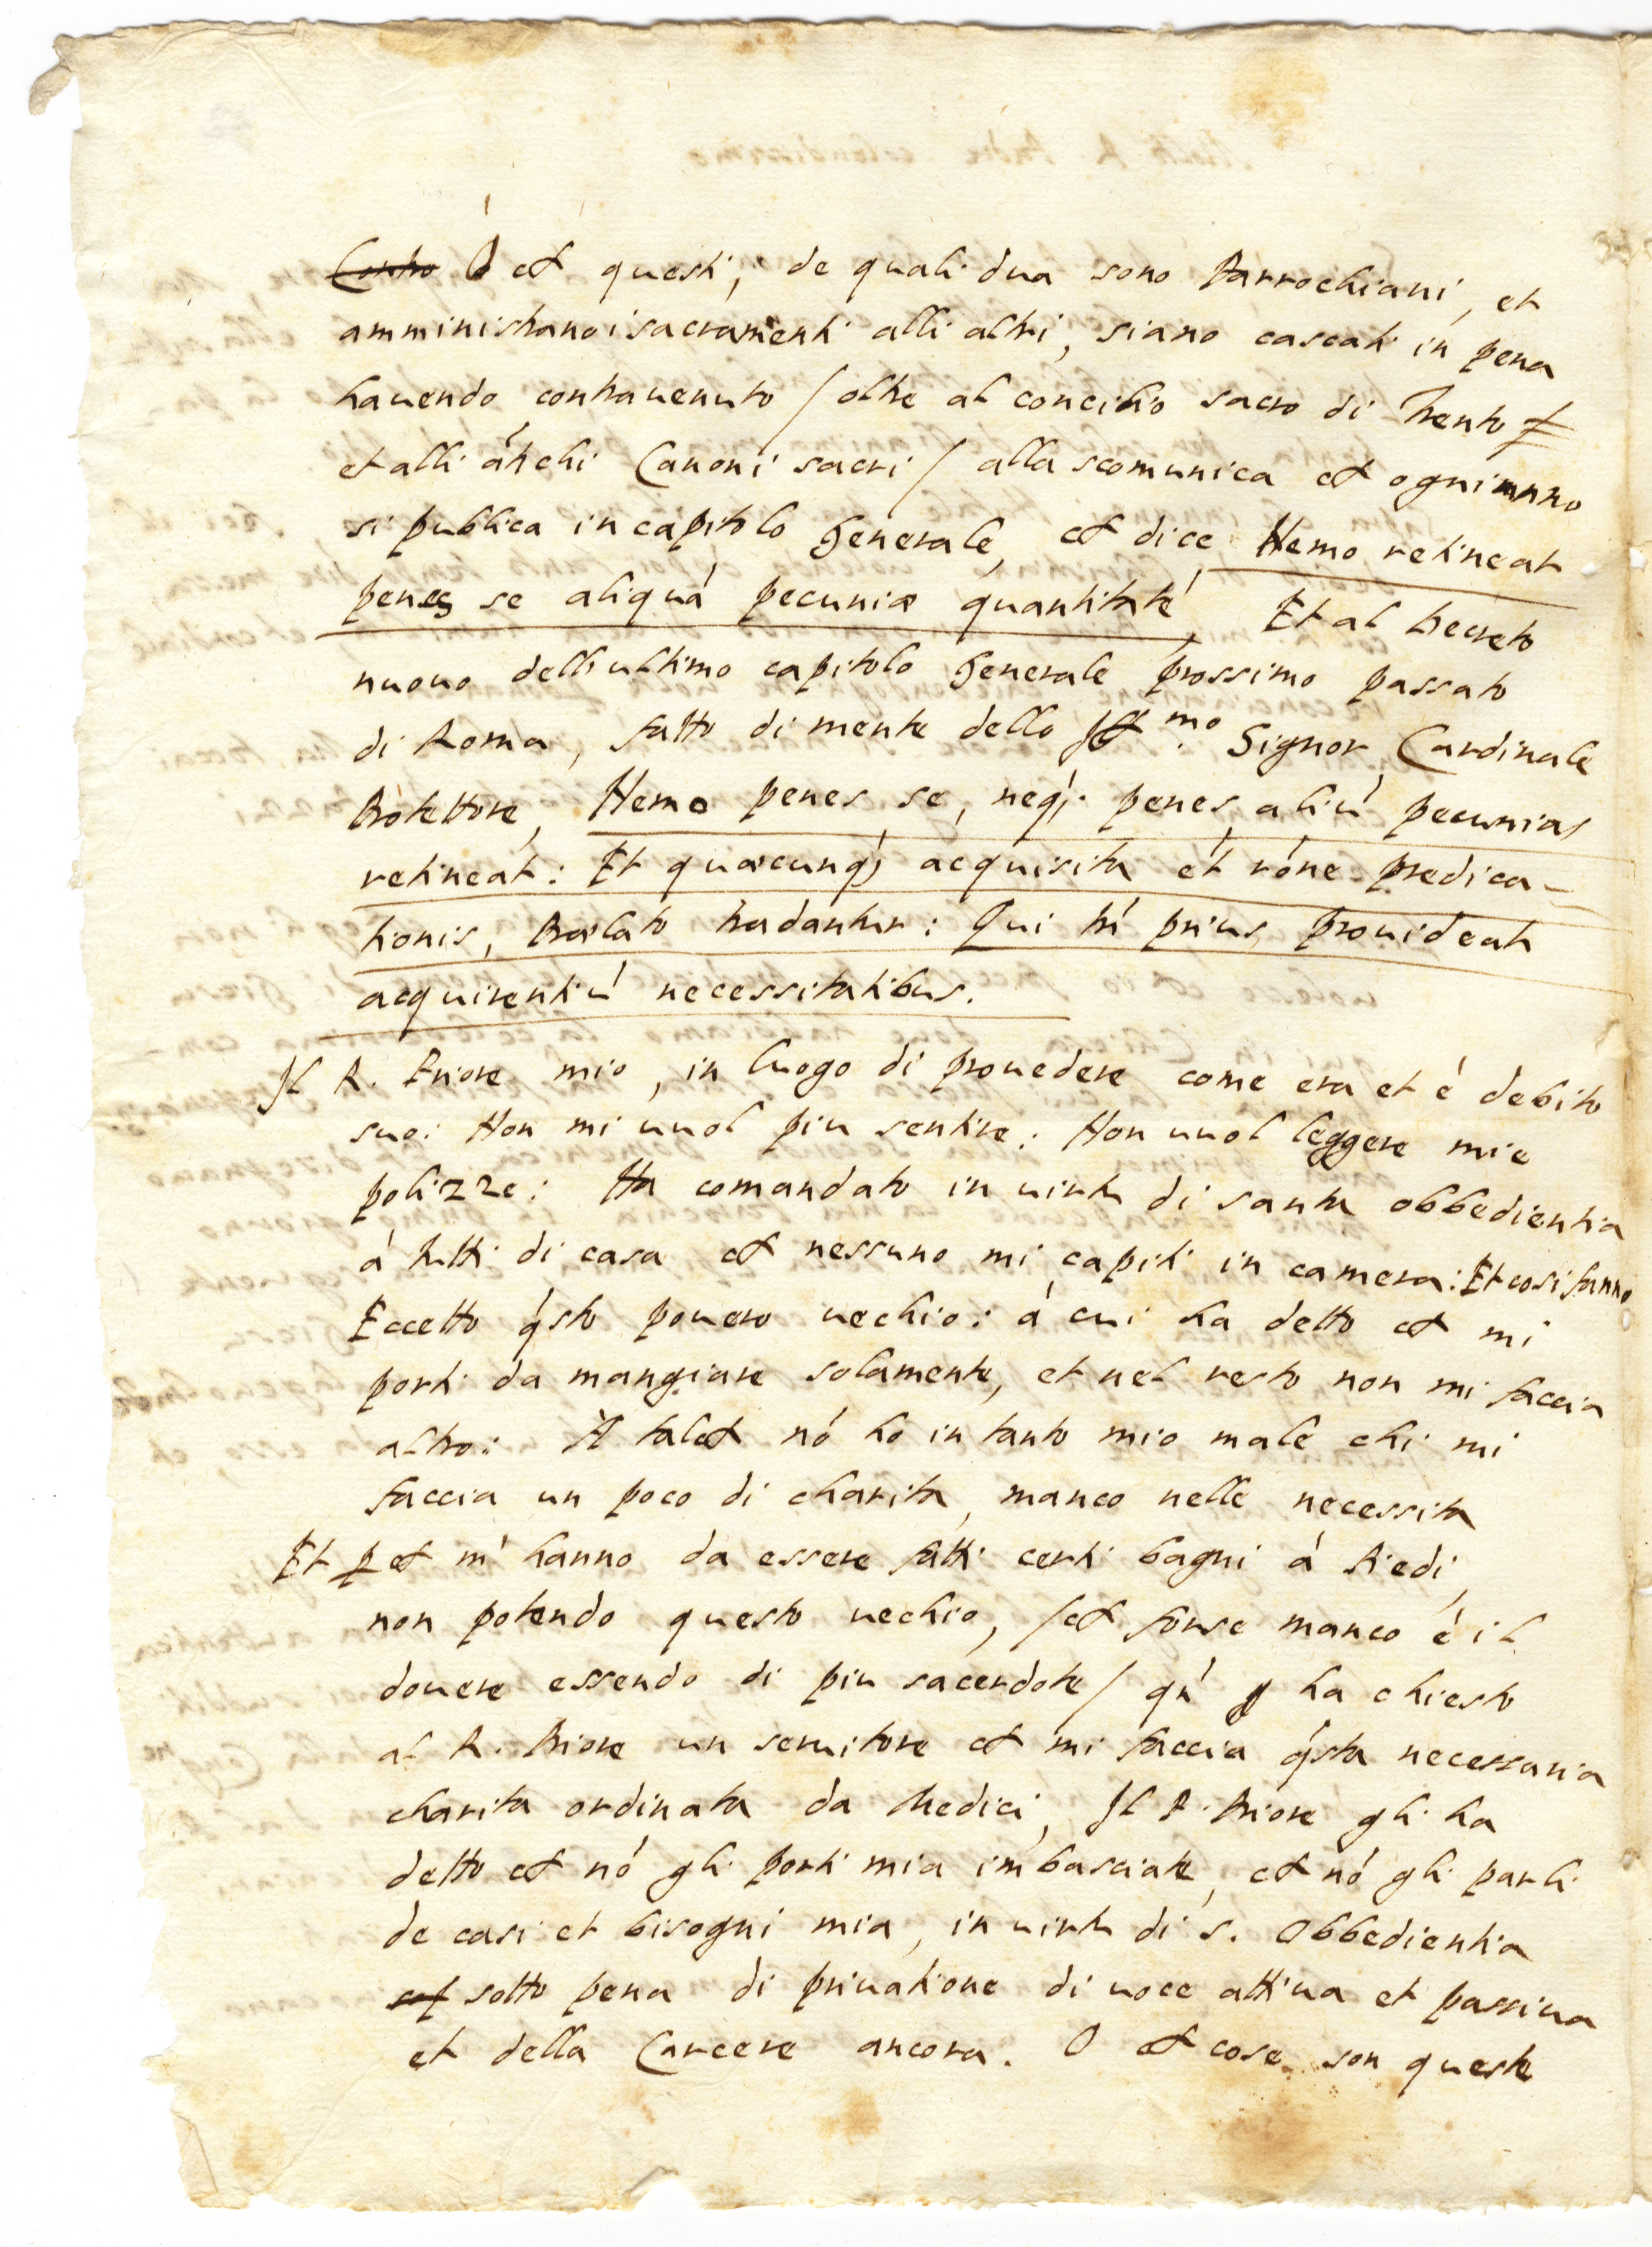 Contro O et questi, de quali dua sono Parrochiani, et
amministrano i sacramenti alli altri, siano cascati in pena
havendo contravenuto / oltre al concilio sacro di Trento
et alli átichi Canoni sacri / alla scomunica ch ogni anno
si publica in capitolo Generale, ch dice Nemo retineat
penes se aliquá pecuniæ quantitaté Et al Decreto
nuovo dell ultimo capitolo Generale prossimo passato
di Roma, fatto di mente dello Ill.mo Signor Cardinale
Protettore, Nemo penes se, neq; penes aliú pecunias
retineat: Et quæcunq; acquisita ét róne predica-
tionis, Prælato tradantur: Qui tń prius provideat
acquirentiú necessitatibus.
Il R. Priore mio, in luogo di provedere come era et é debito
suo: Non mi vuol piu sentire: Non vuol leggere mie
polizze: Ha comandato in virtu di santa obbedientia
á tutti di casa ch nessuno mi capiti in camera: Et cosi fanno
Eccetto q́sto povero vechio: á cui ha detto ch mi
porti da mangiare solamente, et nel resto non mi faccia
altro: A talch nó ho in tanto mio male chi mi
faccia un poco di charita, manco nelle necessita
Et pch m' hanno da essere fatti certi bagni á Piedi,
non potendo questo vechio, / ch forse manco é il
dovere essendo di piu sacerdote / qń ha chiesto
al R. Priore un servitore ch mi faccia q́sta necessaria
charita ordinata da Medici, Il P. Priore gli ha
detto ch nó gli porti mia imbasciate, ch nó gli parli
de casi et bisogni mia, in virtu di s. Obbedientia
sot sotto pena di privatione di voce attiva et passiva
et della Carcere ancora. O ch cose son queste